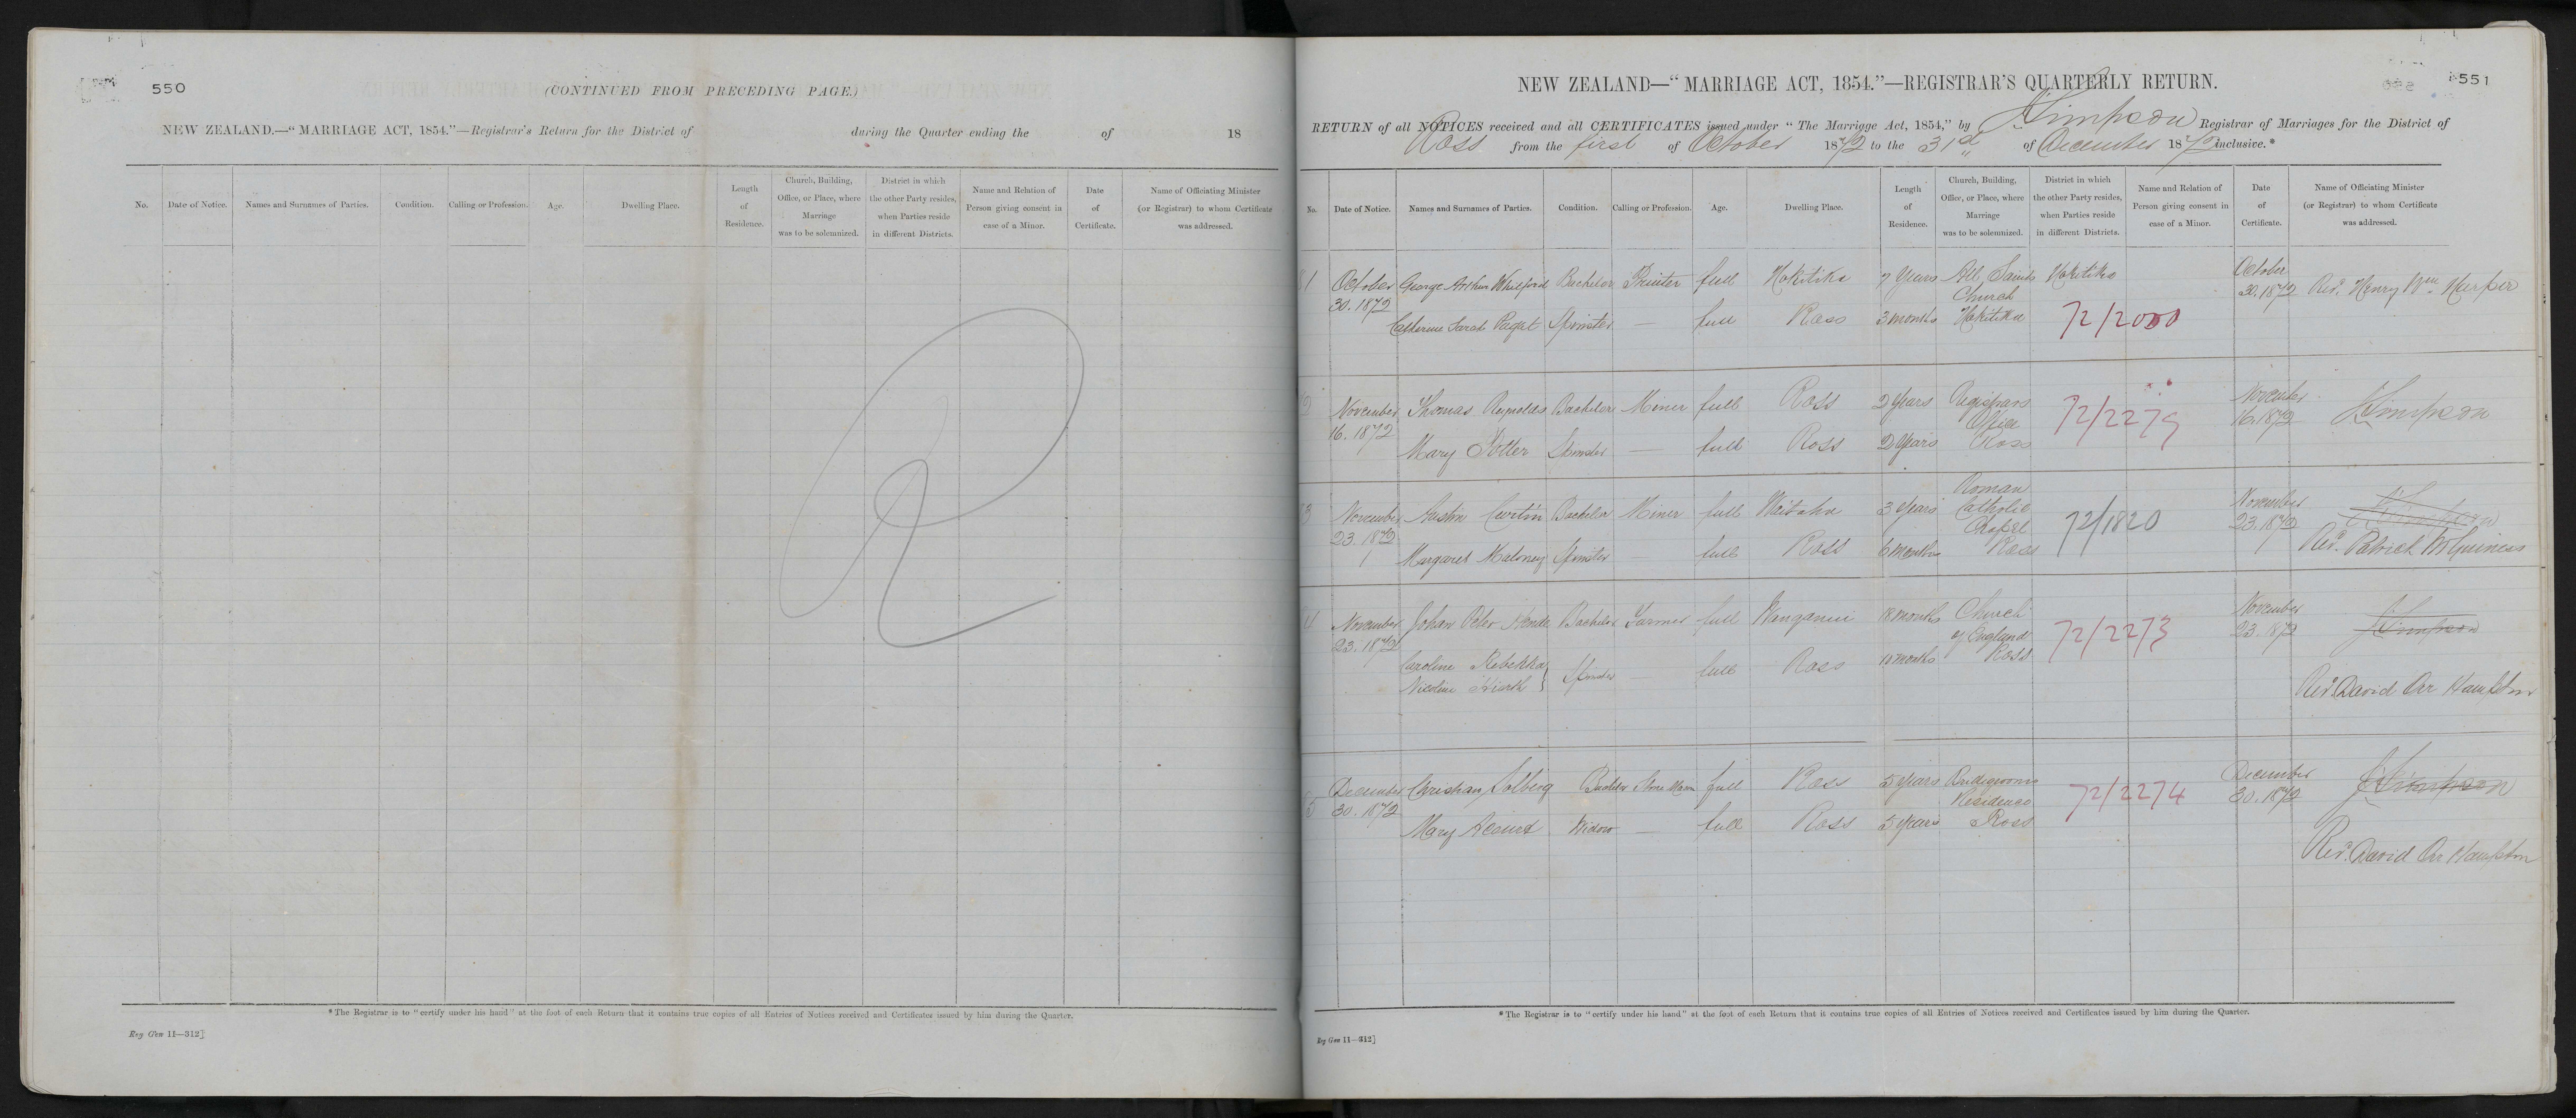 550
(CONTINUED FROM PRECEDING PAGE.)
NEW ZEALAND.—"MARRIAGE ACT, 1854."—Registrar's Return for the District of during the Quarter ending the of 18
No. Date of Notice. Names and Surnames of Parties. Condition. Calling or Profession. Age. Dwelling Place. Length of Residence. Church, Building, Office, or Place, where Marriage was to be solemnized. District in which the other Party resides, when Parties reside in different Districts. Name and Relation of Person giving consent in case of a Minor. Date of Certificate. Name of Officiating Minister (or Registrar) to whom Certificate was addressed.
*The Registrar is to "certify under his hand" at the foot of each Return that it contains true copies of all Entries of Notices received and Certificates issued by him during the Quarter.
Reg Gen 11—312]
551
NEW ZEALAND—"MARRIAGE ACT, 1854."—REGISTRAR'S QUARTERLY RETURN.
RETURN of all NOTICES received and all CERTIFICATES issued under "The Marriage Act, 1854," by Simpson Registrar of Marriages for the District of
Ross from the first of October 1872 to the 31st of December 1872 inclusive.*
No. Date of Notice. Names and Surnames of Parties. Condition. Calling or Profession. Age. Dwelling Place. Length of Residence. Church, Building, Office, or Place, where Marriage was to be solemnized. District in which the other Party resides, when Parties reside in different Districts. Name and Relation of Person giving consent in case of a Minor. Date of Certificate. Name of Officiating Minister (or Registrar) to whom Certificate was addressed.
October 30. 1872 George Arthur Whilford Bachelor Printer full Hokitika 7 Years All Saints Church Hokitika Hokitika October 30. 1872 Revd. Henry Wm. Harper
Catherine Sarah Paget Spinster — full Ross 3 months 72/2000
November 16. 1872 Thomas Reynolds Bachelor Miner full Ross 2 Years Registrars Office Ross 72/2279 November 16. 1872 Simpson
Mary Potter Spinster — full Ross 2 Years
November 23. 1872 Austin Curtin Bachelor Miner full Waitaha 3 Years Roman Catholic Chapel Ross 72/1820 November 23. 1872 Simpson
Margaret Maloney Spinster full Ross 6 months Revd. Patrick McGuiness
November 23. 1872 Johan Peter Bachelor Farmer full Wanganui 18 months Church of England Ross 72/2273 November 23. 1872 Simpson
Caroline Rebekka Nicoline Spinster — full Ross months
Revd. David Orr Hampton
5 December 30. 1872 Christian Solberg Stone Mason full Ross 5 Years Bridegrooms Residence Ross 72/2274 December 30. 1872 Simpson
Mary Widow — full Ross 5 Years
Revd. David Orr Hampton
*The Registrar is to "certify under his hand" at the foot of each Return that it contains true copies of all Entries of Notices received and Certificates issued by him during the Quarter.
Reg Gen 11—312]